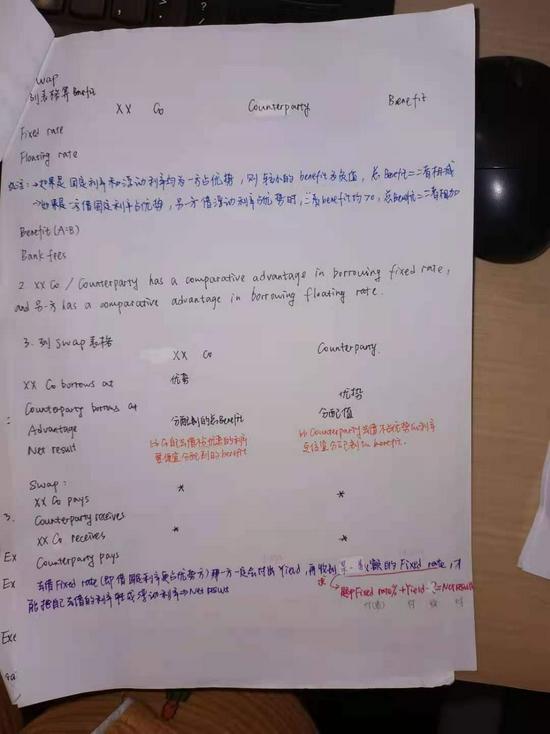 wap
列表格算 Benefit
XX Co Counterparty Benefit
Fixed rate
Floating rate
注：→如果是固定利率和浮动利率均为一方占优势，则较小的 benefit 为负值，总 Benefit = 二者相减
→如果是一方借固定利率占优势，另一方借浮动利率占优势时，二者benefit均>0，总Benefit=二者相加
Benefit (A=B)
Bank fees
2. XX Co / Counterparty has a comparative advantage in borrowing fixed rate,
and 另一方 has a comparative advantage in borrowing floating rate.
3. 列 swap 表格
XX Co Counterparty.
XX Co borrows at 优势
Counterparty borrows at 优势
Advantage 分配到的总Benefit 分配值
Net result Co 自己去借不占优势的利率 Counterparty去借不占优势的利率
要低宜分配到的benefit 分配到的 benefit.
Swap :
XX Co pays * *
3. Counterparty receives
XX Co receives * *
Ex Counterparty pays
Ex 去借 Fixed rate (即借固定利率更占优势方) 那一方一定会付出 Yield，再收到 额的 Fixed rate，才
能把自己去借的利率转成浮动利率⇒Net result
Fixed rate% + Yield - ? = Net result
付 收 付
Exe